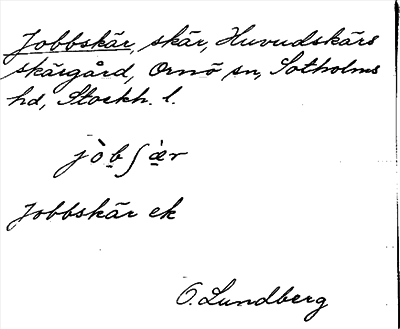 Jobbskär, skär, Huvudskärs
skärgård, Ornö sn, Sotholms
hd, Stockh. l.
jòb̤ʃæ̤̀r
Jobbskär ek
O. Lundberg